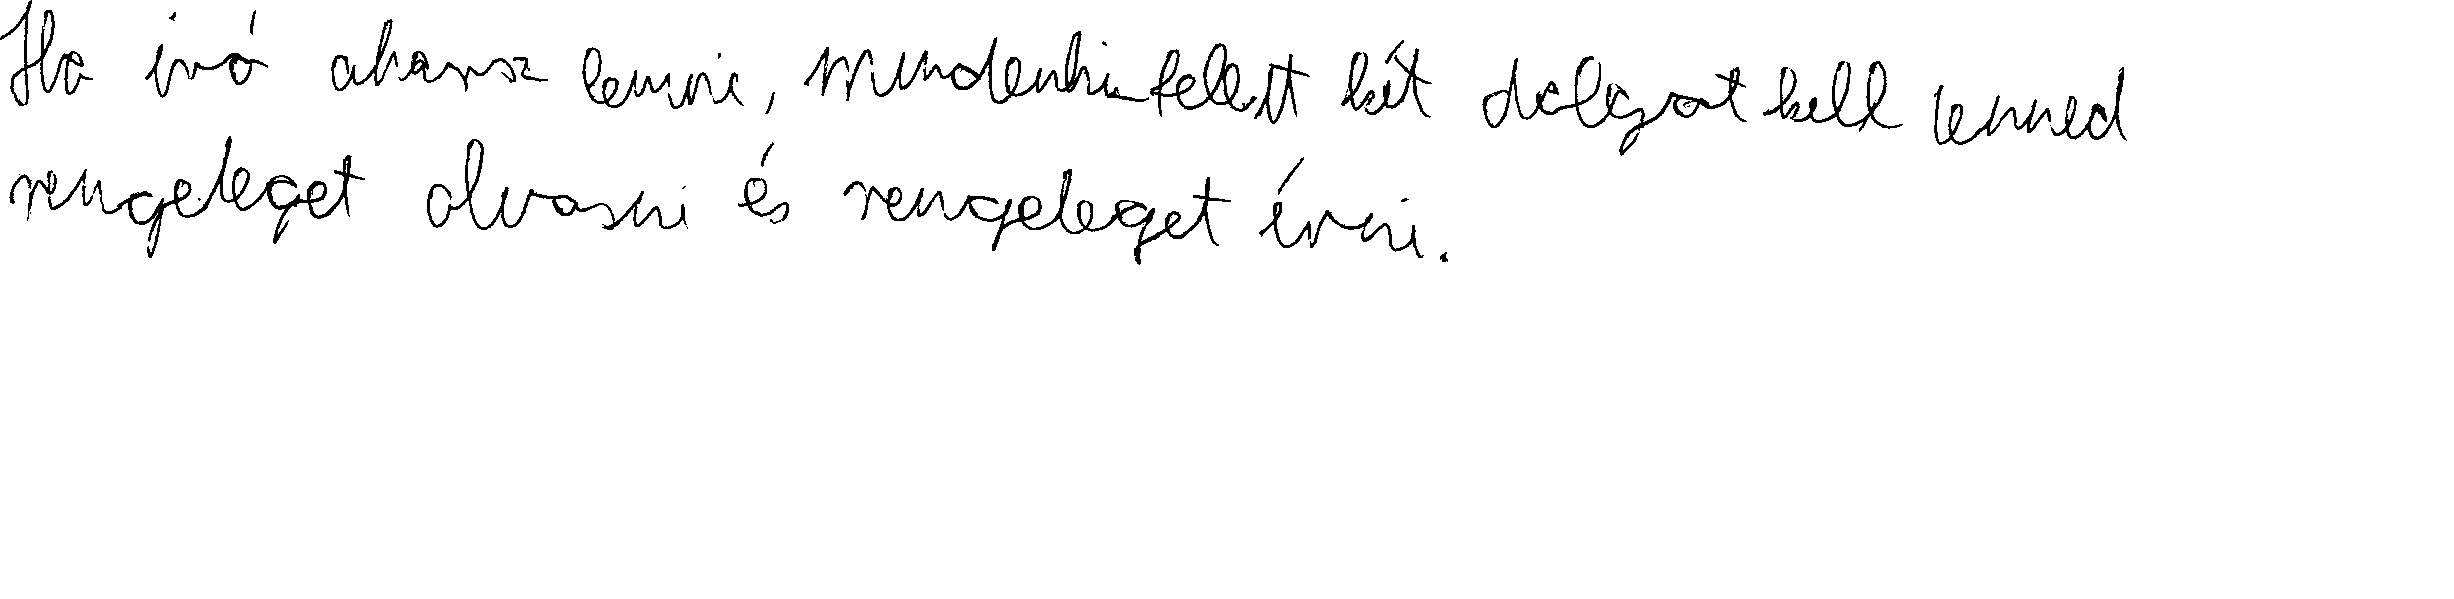 Ha író akarsz lenni, mindenkifelett két dolgot kell tenned
rengeteget olvasni és rengeteget írni.